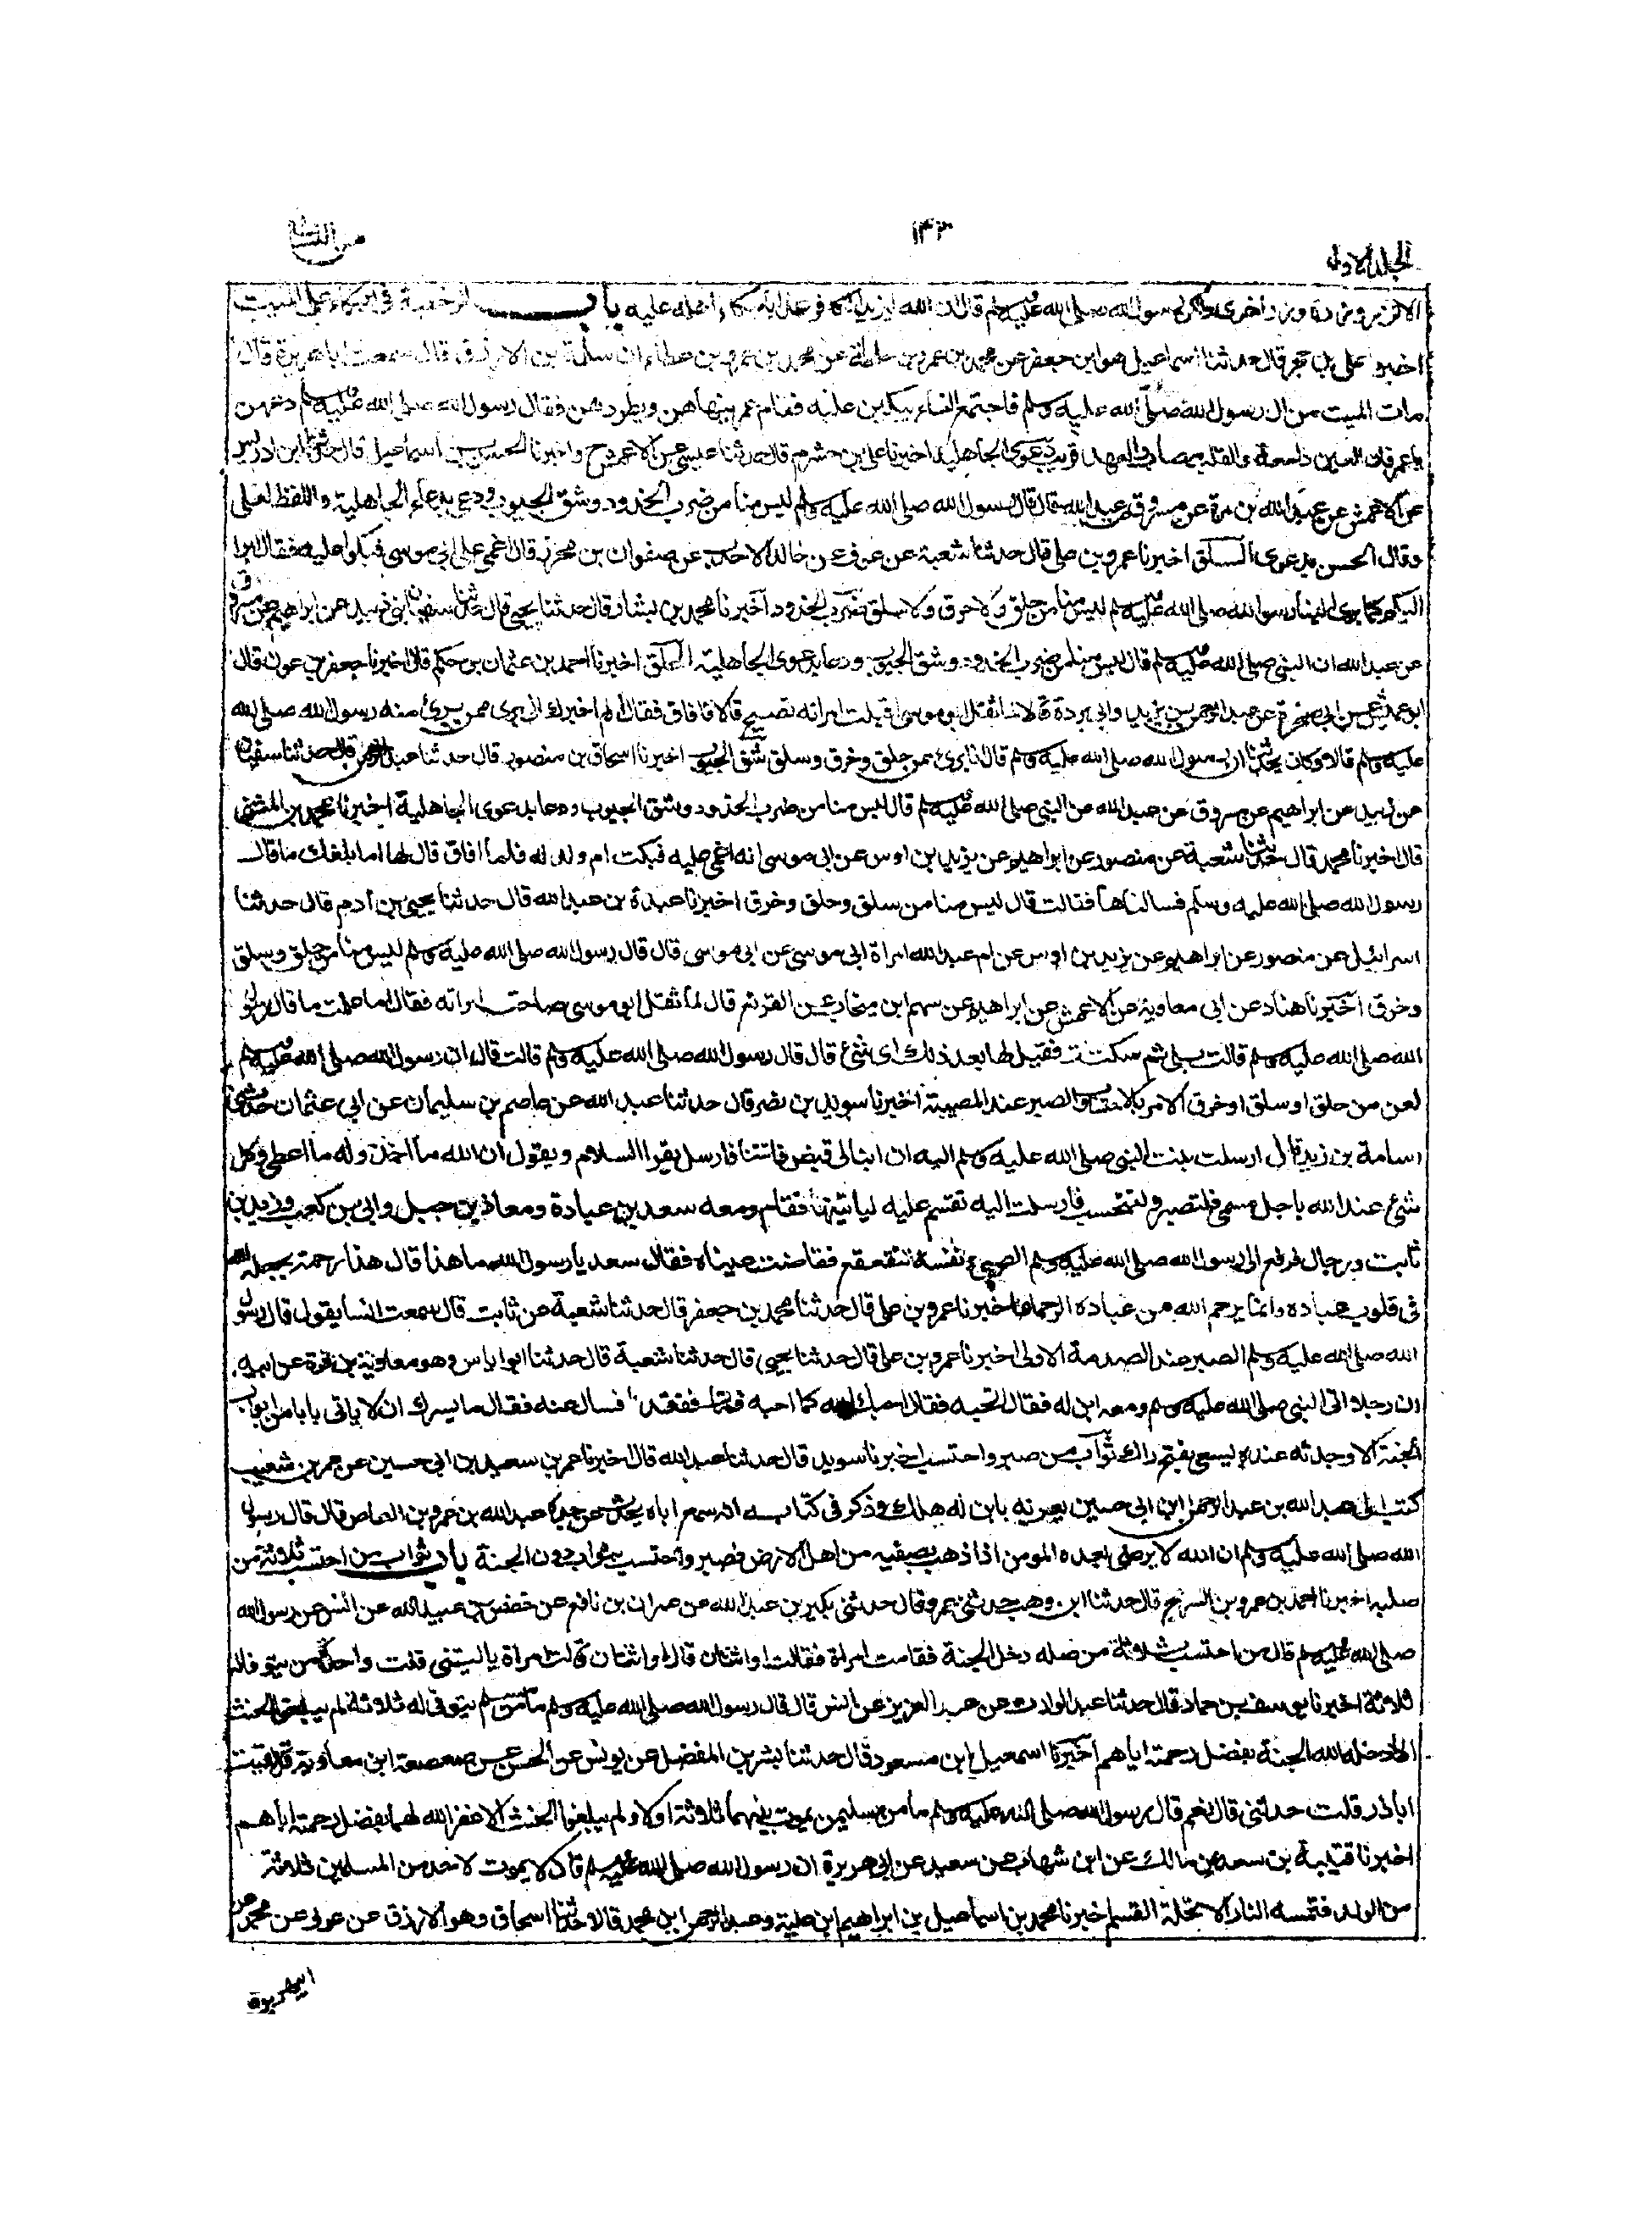 الجلد الاول
١٤٣
من النسائى
الا تزر وازرة وزر اخرى ولكن رسول الله صلى الله عليه وسلم قال ان الله ليزيد الكافر عذابا ببكاء اهله عليه باب الرخصة فى البكاء على الميت
اخبرنا على بن حجر قال حدثنا اسماعيل هو ابن جعفر عن محمد بن عمرو بن حلحلة عن محمد بن عمرو بن عطاء ان سلمة بن الازرق قال سمعت ابا هريرة قال
مات الميت من ال رسول الله صلى الله عليه وسلم فاجتمع النساء يبكين عليه فقام عمر ينهاهن ويطردهن فقال رسول الله صلى الله عليه وسلم دعهن
يا عمر فان العين دامعة والقلب مصاب والعهد قريب دعوى الجاهلية اخبرنا على بن خشرم قال حدثنا عيسى عن الاعمش ح واخبرنا الحسن بن اسماعيل قال حدثنا ابن ادريس
عن الاعمش عن عبد الله بن مرة عن مسروق عن عبد الله قال قال رسول الله صلى الله عليه وسلم ليس منا من ضرب الخدود وشق الجيوب ودعى بدعاء الجاهلية واللفظ لعلى
وقال الحسن بدعوى السلق اخبرنا عمرو بن على قال حدثنا شعبة عن عوف عن خالد الاحدب عن صفوان بن محرز قال اغمى على ابى موسى فبكوا عليه فقال ابرا
اليكم كما برئ الينا رسول الله صلى الله عليه وسلم ليس منا من حلق ولا خرق ولا سلق ضرب الخدود اخبرنا محمد بن بشار قال حدثنا يحيى قال حدثنا سفيان حدثنى زبيد عن ابراهيم عن مسروق
عن عبد الله ان النبى صلى الله عليه وسلم قال ليس منا من ضرب الخدود وشق الجيوب ودعا بدعوى الجاهلية الحلق اخبرنا احمد بن عثمان بن حكيم قال اخبرنا جعفر بن عون قال
ابو عميس عن ابى صخرة عن عبد الرحمن بن يزيد وابى بردة قالا لما ثقل ابو موسى اقبلت امراته تصيح قالا فافاق فقال الم اخبرك انى برى ممن برئ منه رسول الله صلى الله
عليه وسلم قالا وكان يحدثنا ان رسول الله صلى الله عليه وسلم قال انا برئ ممن حلق وخرق وسلق شق الجيوب اخبرنا اسحاق بن منصور قال حدثنا عبد الرحمن قال حدثنا سفيان
عن زبيد عن ابراهيم عن مسروق عن عبد الله عن النبى صلى الله عليه وسلم قال ليس منا من ضرب الخدود وشق الجيوب ودعا بدعوى الجاهلية اخبرنا محمد بن المثنى
قال اخبرنا محمد قال حدثنا شعبة عن منصور عن ابراهيم عن يزيد بن اوس عن ابى موسى انه اغمى عليه فبكت ام ولد له فلما افاق قال لها اما بلغك ما قال
رسول الله صلى الله عليه وسلم فسالناها فقالت قال ليس منا من سلق وحلق وخرق اخبرنا عبدة بن عبد الله قال حدثنا يحيى بن ادم قال حدثنا
اسرائيل عن منصور عن ابراهيم عن يزيد بن اوس عن ام عبد الله امراة ابى موسى عن ابى موسى قال قال رسول الله صلى الله عليه وسلم ليس منا من حلق وسلق
وخرق اخبرنا هناد عن ابى معاوية عن الاعمش عن ابراهيم عن سهم ابن منجاب عن القرثع قال لما ثقل ابو موسى صاحت امراته فقال اما علمت ما قال رسول
الله صلى الله عليه وسلم قالت بلى ثم سكتت فقيل لها بعد ذلك اى شئ قال قال رسول الله صلى الله عليه وسلم قالت قال ان رسول الله صلى الله عليه وسلم
لعن من حلق او سلق او خرق الامر بالاحتساب والصبر عند المصيبة اخبرنا سويد بن نصر قال حدثنا عبد الله عن عاصم بن سليمان عن ابى عثمان حدثنى
اسامة بن زيد قال ارسلت بنت النبى صلى الله عليه وسلم اليه ان ابنا لى قبض فاتنا فارسل يقرا السلام ويقول ان الله ما اخذ وله ما اعطى وكل
شئ عند الله باجل مسمى فلتصبر ولتحتسب فارسلت اليه تقسم عليه لياتينها فقام ومعه سعد بن عبادة ومعاذ بن جبل وابى بن كعب وزيد بن
ثابت ورجال فرفع الى رسول الله صلى الله عليه وسلم الصبى ونفسه تتقعقع ففاضت عيناه فقال سعد يا رسول الله ما هذا قال هذا رحمة يجعلها الله
فى قلوب عباده وانما يرحم الله من عباده الرحماء اخبرنا عمرو بن على قال حدثنا محمد بن جعفر قال حدثنا شعبة عن ثابت قال سمعت انسا يقول قال رسول
الله صلى الله عليه وسلم الصبر عند الصدمة الاولى اخبرنا عمرو بن على قال حدثنا يحيى قال حدثنا شعبة قال حدثنا ابو اياس وهو معاوية بن قرة عن ابيه
ان رجلا اتى النبى صلى الله عليه وسلم ومعه ابن له فقال اتحبه فقال احبك الله كما احبه فمات ففقده فسال عنه فقال ما يسرك ان لا ياتى بابا من ابواب
الجنة الا وجدته عنده يسعى يفتح لك ثواب من صبر واحتسب اخبرنا سويد قال حدثنا عبد الله قال اخبرنا عمر بن سعيد بن ابى حسين عن عمرو بن شعيب
كتب الى عبد الله بن عبد الرحمن ابن ابى حسين يعزيه بابن له هلك وذكر فى كتابه انه سمع اباه يحدث عن جده عبد الله بن عمرو بن العاص قال قال رسول
الله صلى الله عليه وسلم ان الله لا يرضى لعبده المومن اذا ذهب بصفيه من اهل الارض فصبر واحتسب بثواب دون الجنة باب ثواب من احتسب ثلاثة من
صلبه اخبرنا احمد بن عمرو بن السرح قال حدثنا ابن وهب حدثنى عمرو قال حدثنى بكير بن عبد الله عن عمران بن نافع عن حفص بن عبيد الله عن انس عن رسول الله
صلى الله عليه وسلم قال من احتسب ثلاثة من صلبه دخل الجنة فقامت امراة فقالت او اثنان قال او اثنان قالت امراة يا ليتنى قلت واحدا من يتوفى له
ثلاثة اخبرنا يوسف بن حماد قال حدثنا عبد الوارث عن عبد العزيز عن انس قال قال رسول الله صلى الله عليه وسلم ما من مسلم يتوفى له ثلاثة لم يبلغوا الحنث
الا ادخله الله الجنة بفضل رحمته اياهم اخبرنا اسمعيل ابن مسعود قال حدثنا بشر بن المفضل عن يونس عن الحسن عن صعصعة ابن معاوية قال لقيت
ابا ذر قلت حدثنى قال نعم قال رسول الله صلى الله عليه وسلم ما من مسلمين يموت بينهما ثلاثة اولاد لم يبلغوا الحنث الا غفر الله لهما بفضل رحمته اياهم
اخبرنا قتيبة بن سعيد عن مالك عن ابن شهاب عن سعيد عن ابى هريرة ان رسول الله صلى الله عليه وسلم قال لا يموت لاحد من المسلمين ثلاثة
من الولد فتمسه النار الا تحلة القسم اخبرنا محمد بن اسماعيل بن ابراهيم ابن علية وعبد الرحمن ابن محمد قالا حدثنا اسحاق وهو الازرق عن عوف عن محمد عن
ابى هريرة